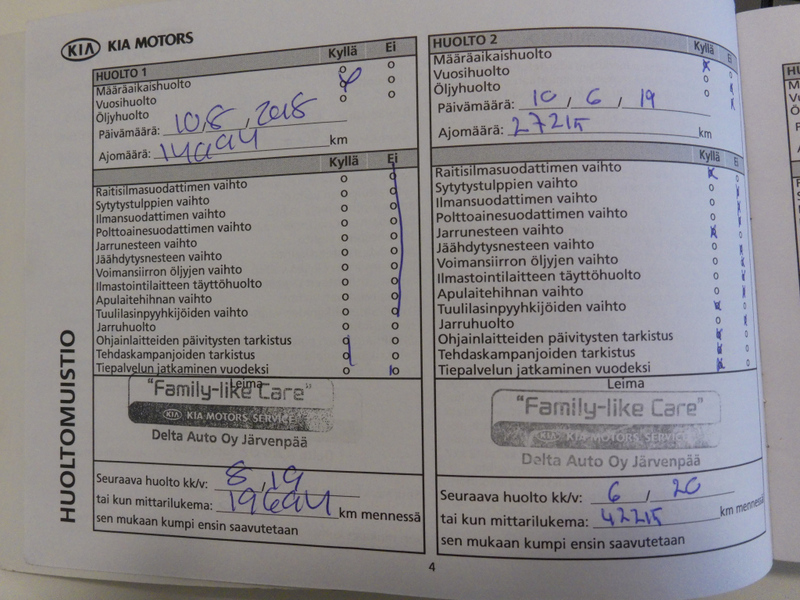 KIA KIA MOTORS
HUOLTO 1 Kyllä Ei
Määräaikaishuolto
Vuosihuolto
Öljyhuolto
Päivämäärä: 10.8, 2018
Ajomäärä: km
Kyllä Ei
Raitisilmasuodattimen vaihto
Sytytystulppien vaihto
Ilmansuodattimen vaihto
Polttoainesuodattimen vaihto
Jarrunesteen vaihto
Jäähdytysnesteen vaihto
Voimansiirron öljyjen vaihto
Ilmastointilaitteen täyttöhuolto
Apulaitehihnan vaihto
Tuulilasinpyyhkijöiden vaihto
Jarruhuolto
Ohjainlaitteiden päivitysten tarkistus
Tehdaskampanjoiden tarkistus
Tiepalvelun jatkaminen vuodeksi
Leima
"Family-like Care"
KIA KIA MOTORS SERVICE
Delta Auto Oy Järvenpää
Seuraava huolto kk/v: 8, 19
tai kun mittarilukema: km mennessä
sen mukaan kumpi ensin saavutetaan
HUOLTO 2 Kyllä Ei
Määräaikaishuolto
Vuosihuolto
Öljyhuolto
Päivämäärä: 10 / 6 / 19
Ajomäärä: 27215 km
Kyllä Ei
Raitisilmasuodattimen vaihto
Sytytystulppien vaihto
Ilmansuodattimen vaihto
Polttoainesuodattimen vaihto
Jarrunesteen vaihto
Jäähdytysnesteen vaihto
Voimansiirron öljyjen vaihto
Ilmastointilaitteen täyttöhuolto
Apulaitehihnan vaihto
Tuulilasinpyyhkijöiden vaihto
Jarruhuolto
Ohjainlaitteiden päivitysten tarkistus
Tehdaskampanjoiden tarkistus
Tiepalvelun jatkaminen vuodeksi
Leima
"Family-like Care"
KIA KIA MOTORS SERVICE
Delta Auto Oy Järvenpää
Seuraava huolto kk/v: 6 / 20
tai kun mittarilukema: 42215 km mennessä
sen mukaan kumpi ensin saavutetaan
HUOLTOMUISTIO
4